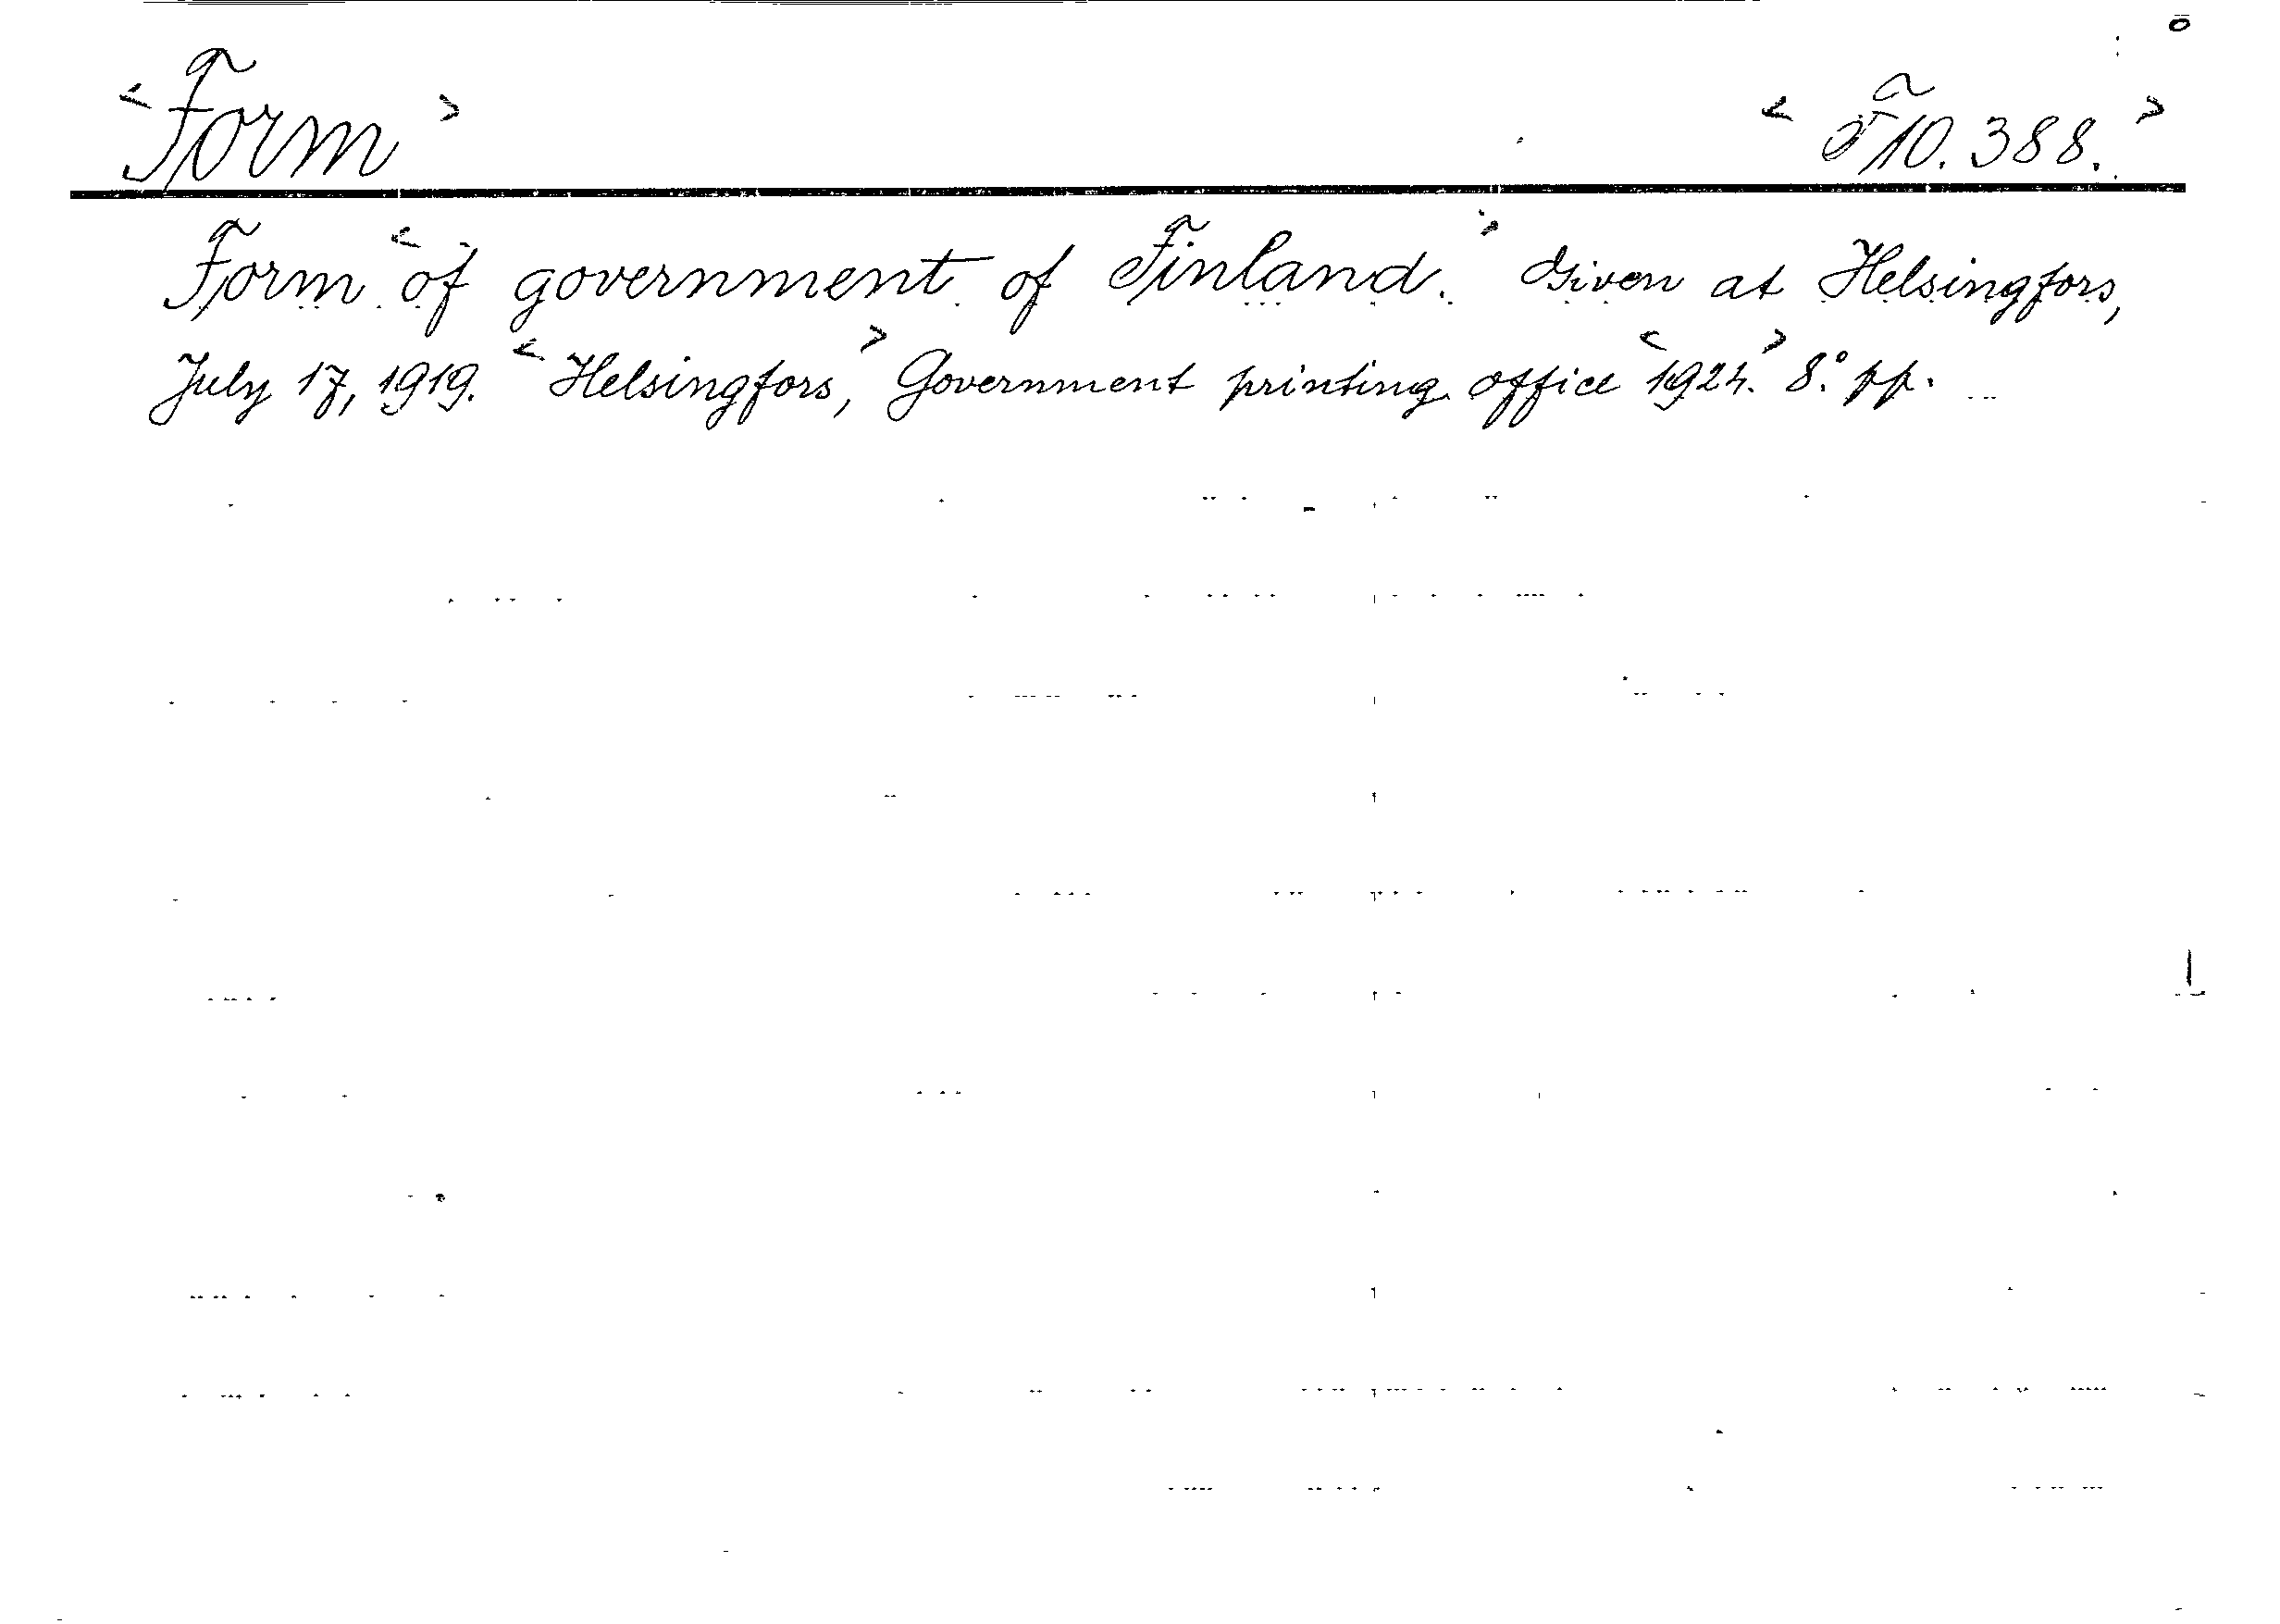 <Form> <F10.388.>
Form <of government of Finland.> Given at Helsingfors,
July 17, 1919. <Helsingfors,> Government printing office <1924.> 8:o pp.